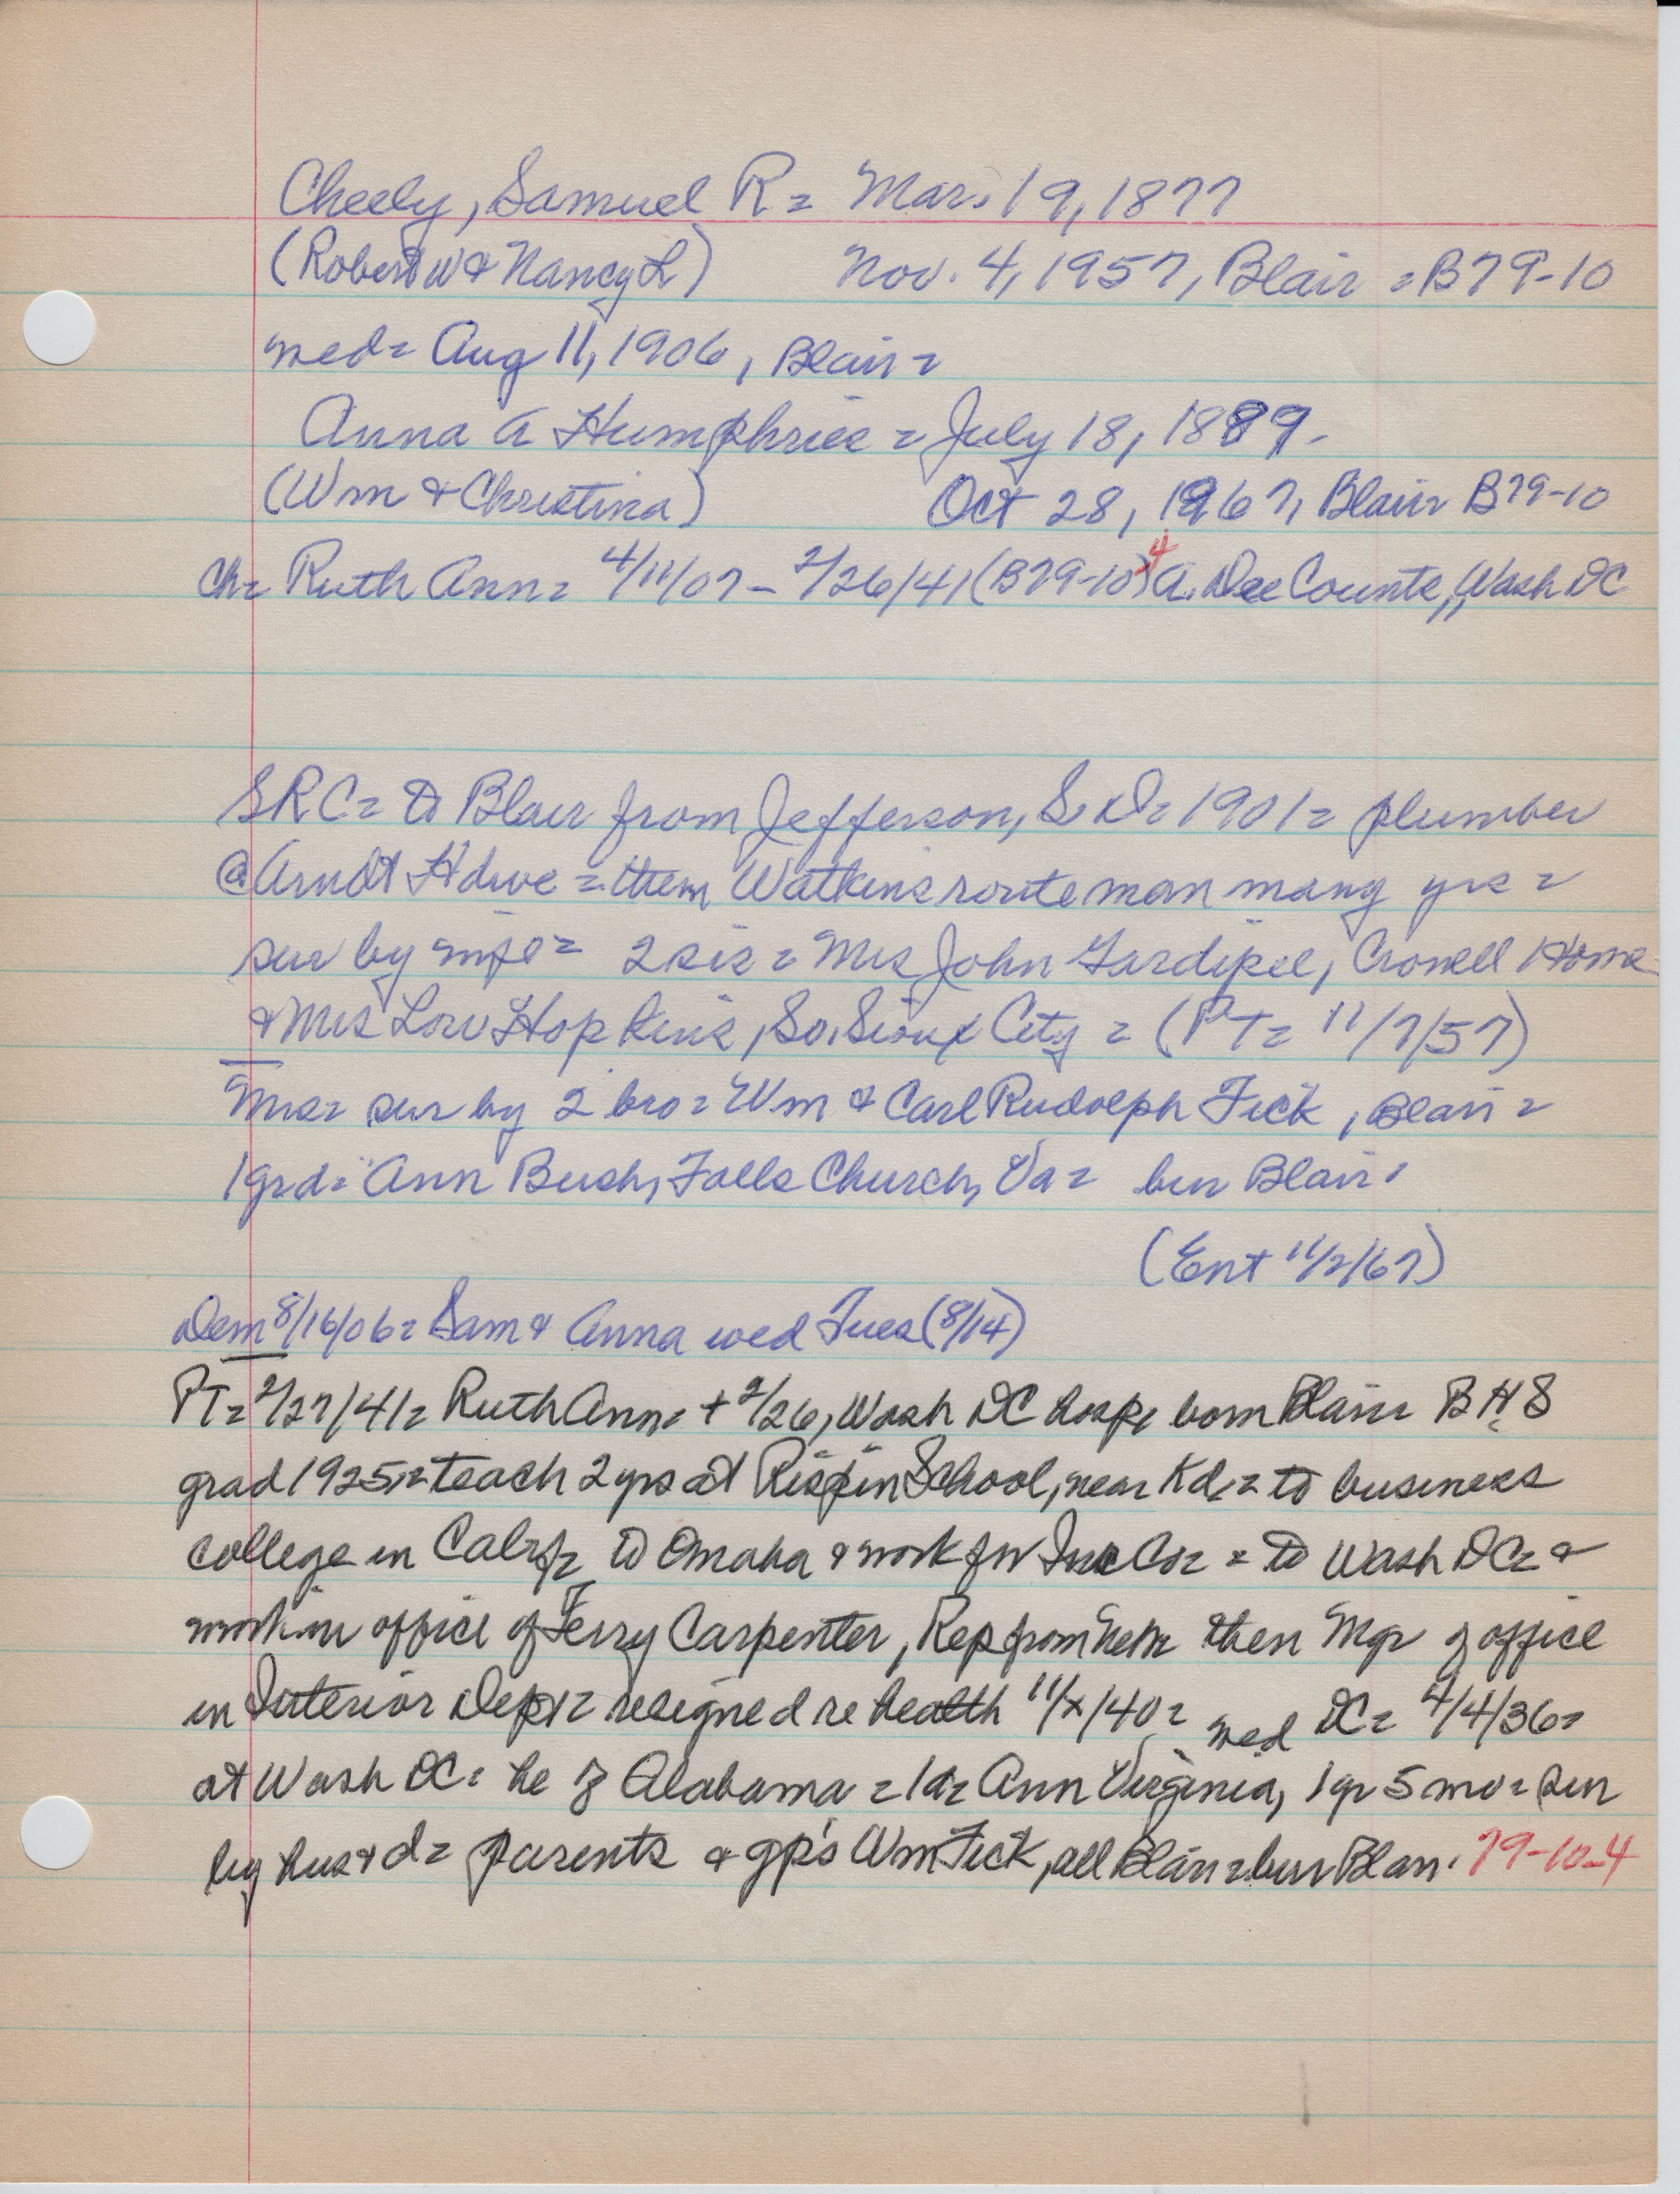 Cheely, Samuel R = Mar. 19, 1877
(Robert W & Nancy L) Nov. 4, 1957, Blair = B79-10
med = Aug 11, 1906, Blair =
Anna A Humphries = July 18, 1889 -
(Wm & Christina) Oct 28, 1967, Blair B79-10
ch = Ruth Ann = 4/11/07 - 2/26/41 (B79-10) 4 A. Dee Counts, Wash DC
SRC = to Blair from Jefferson, S.D = 1901 = plumber
@ Arndt Hdwe = then Watkins route man many yrs =
sur by wife = 2 sis = Mrs John Fardipee, Crowell Home
& Mrs Lou Hopkins, So. Sioux City = (PT = 11/7/57)
Mrs = sur by 2 bro = Wm & Carl Rudolph Fick, Blair =
1 grd = Ann Bush, Falls Church, Va = bur Blair.
(Ent 11/2/67)
Dem 8/16/06 = Sam & Anna wed Tues (8/14)
PT = 2/27/41 = Ruth Ann = + 2/26, Wash DC hosp = born Blair = BHS
grad 1925 = teach 2 yrs at Rispin School, near Kd = to business
college in Calif = to Omaha & work for Ins Co = = to Wash DC = &
work in office of Terry Carpenter, Rep from Neb = then Mgr of office
in Interior Dept = resigned re health 11/x/40 = med DC = 4/4/36 =
at Wash DC = he of Alabama = 1 d = Ann Virginia, 1 yr 5 mo = sur
by hus & d = parents & gp's Wm Fick, all Blair = bur Blair. 79-10-4